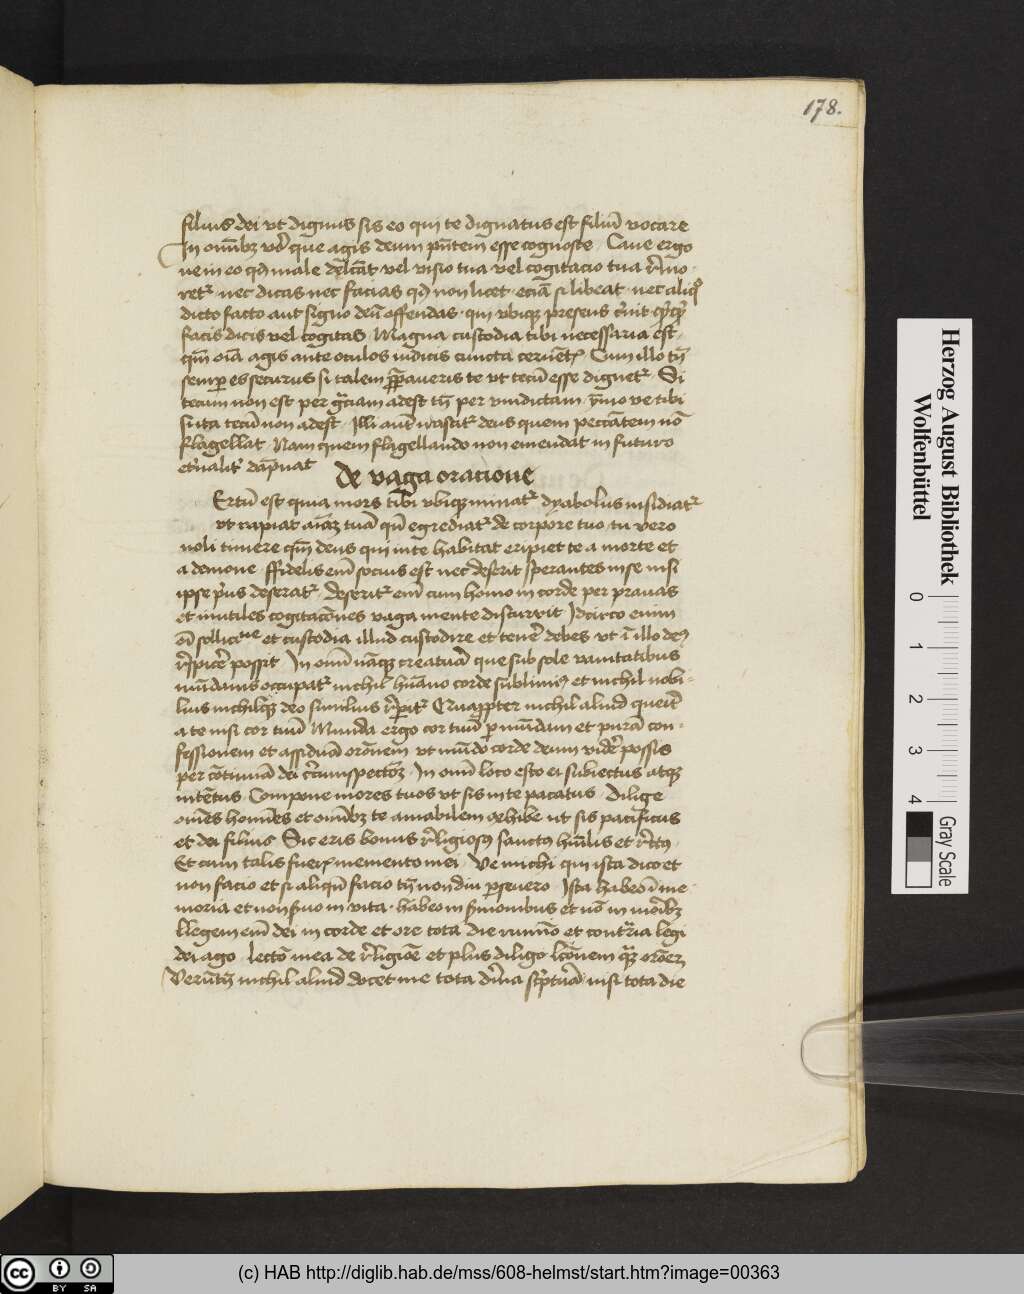 178.
filius dei vt dignus sis eo qui te dignatus est filiū vocare
In om̄ibꝫ vero que agis deum pn̄tem esse cognosce . Caue ergo
ne in eo qd male delcāt vel visio tua vel cogitacio tua
nec dicas nec facias qd non licet . eciā si libeat . nec aliqͦ
dicto facto aut signo deū offendas . qui vbiqꝫ presens
facis dicis vel cogitas . Magna custodia tibi necessaria est .
qm̄ oīa agis ante oculos iudicis cuncta cernētꝭ Cum illo tn̄
semp es securus si talem te vt tecū esse dignetꝭ . Si
tecum non est per gr̄ciam adest tn̄ per vindictam . ve tibi
si ita tecū non adest . Illi aut̄ irascitꝭ deus quem peccātem nō
flagellat . Nam quem flagellando non emendat in futuro
etn̄alitꝭ dāpnat
De vaga oracione
Ertū est quia mors tibi vbiqꝫ minatꝭ dyabolus insidiatꝭ
vt rapiat aīaꝫ tuā qn̄ egrediatꝭ de corpore tuo . tu vero
noli timere qm̄ deus qui in te habitat eripiet te a morte et
a demone . ffidelis em̄ socius est nec deserit sperantes in se nisi
ipse pⁱus deseratꝭ . deseritꝭ em̄ cum homo in corde per prauas
et inutiles cogitacōnes vaga mente discurrit Idcirco enim
oī sollicⁿᵉ et custodia illud custodire et tenēr debes vt ī illo deꝰ
possit . In om̄i nāqꝫ creatura que sub sole vanitatibus
mūdanis occupatꝭ nichil hūano corde sublimiꝰ et nichil nobi-
lius nichilqꝫ deo similius Quapp̄ter nichil aliud querit
a te nisi cor tuū Munda ergo cor tuū p mūdam et purā con-
fessionem et assiduā orōnem vt mūdo corde deum vidēr possis
per cōtinuā dei . In om̄i loco esto ei subiectus atqꝫ
intētus . Compone mores tuos vt sis in te pacatus . Dilige
om̄es homīes et om̄ibꝫ te amabilem exhibe ut sis pacificus
et dei filius Sic eris bonus religiosꝰ sanctꝰ hūilis et
Et cum talis fuerꝭ memento mei . Ve michi qui ista dico et
non facio et si aliqn̄ facio tn̄ non diu pseuero . Ista habeo ī me
moria et non seruo in vita . habeo in sermonibus et nō in moribꝫ
Llegem em̄ dei in corde et ore tota die rumīo et contraria legi
dei ago . lecto mea de religiōe et plus diligo lcōnem qꝫ orōeꝫ
Verūtn̄ nichil aliud docet me tota diuīa sc̄ptūra nisi tota die
Herzog August Bibliothek
Wolfenbüttel
0 1 2 3 4
Gray Scale
cc BY SA
(c) HAB http://diglib.hab.de/mss/608-helmst/start.htm?image=00363